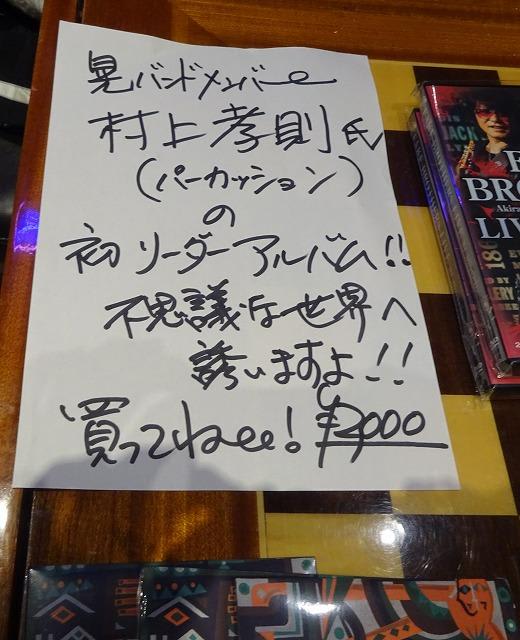 晃バンドメンバーの
村上孝則氏
(パーカッション)
の
初リーダーアルバム!!
不思議な世界へ
誘いますよ!!
買ってねee! ¥2000
JACK
BRO
Akira
LIV
186